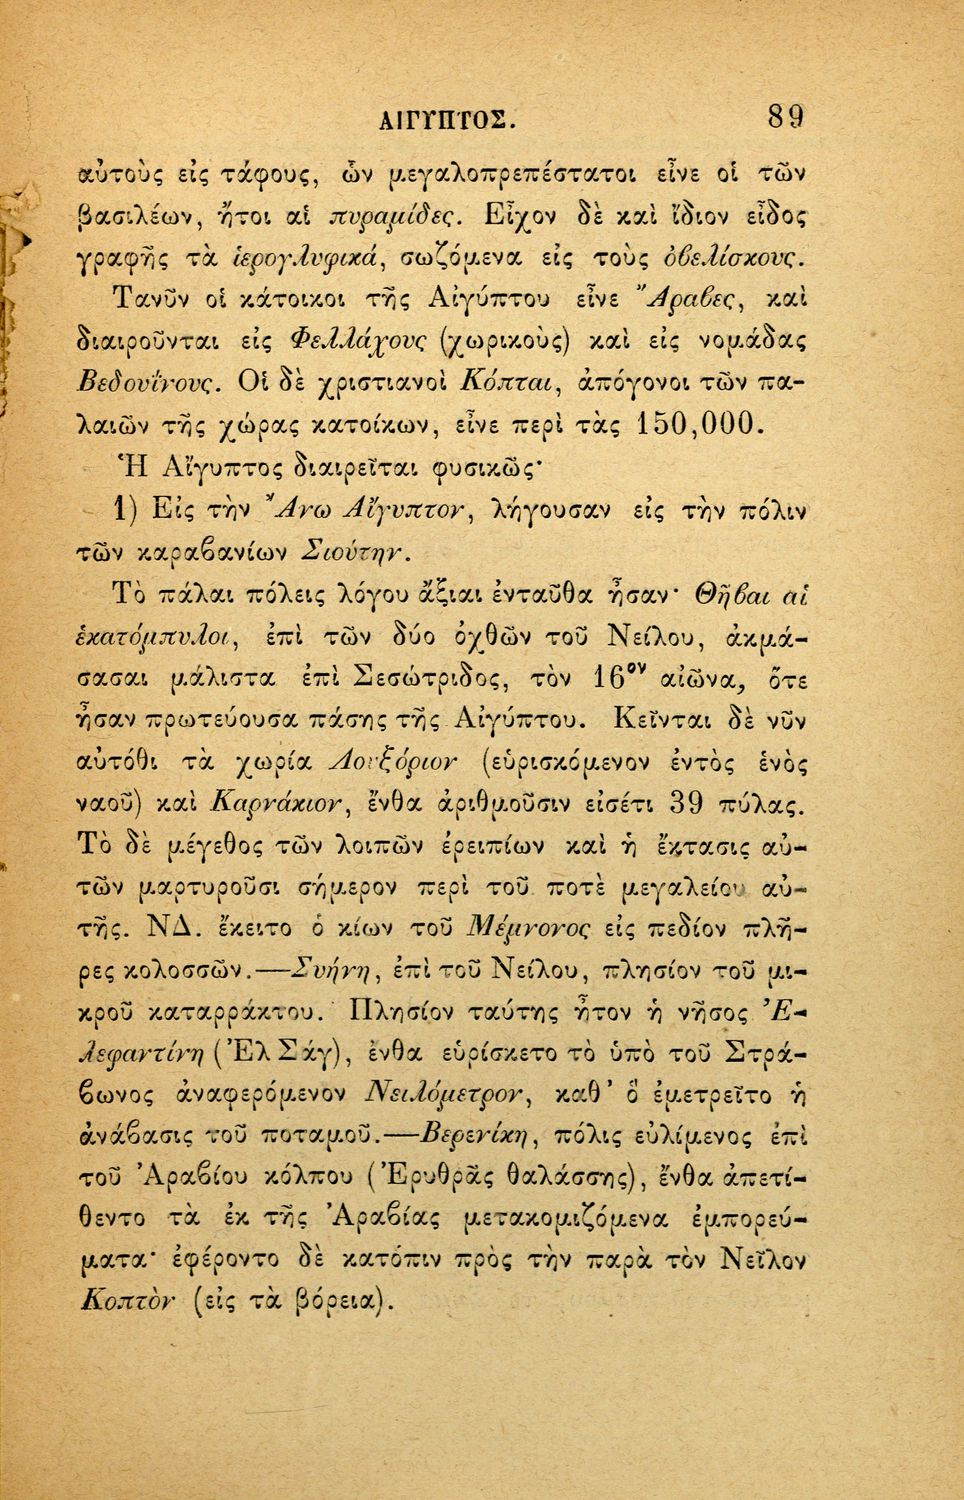 ΑΙΓΥΠΤΟΣ. 89
αὐτοὺς εἰς τάφους, ὧν μεγαλοπρεπέστατοι εἶνε οἱ τῶν
βασιλέων, ἤτοι αἱ πυραμίδες. Εἶχον δὲ καὶ ἴδιον εἶδος
γραφῆς τὰ ἱερογλυφικά, σωζόμενα εἰς τοὺς ὀβελίσκους.
Τανῦν οἱ κάτοικοι τῆς Αἰγύπτου εἶνε Ἄραβες, καὶ
διαιροῦνται εἰς Φελλάχους (χωρικοὺς) καὶ εἰς νομάδας
Βεδουΐνους. Οἱ δὲ χριστιανοὶ Κόπται, ἀπόγονοι τῶν πα-
λαιῶν τῆς χώρας κατοίκων, εἶνε περὶ τὰς 150,000.
Ἡ Αἴγυπτος διαιρεῖται φυσικῶς·
1) Εἰς τὴν Ἄνω Αἴγυπτον, λήγουσαν εἰς τὴν πόλιν
τῶν καραβανίων Σιούτην.
Τὸ πάλαι πόλεις λόγου ἄξιαι ἐνταῦθα ἦσαν· Θῆβαι αἱ
ἑκατόμπυλοι, ἐπὶ τῶν δύο ὀχθῶν τοῦ Νείλου, ἀκμά-
σασαι μάλιστα ἐπὶ Σεσώτριδος, τὸν 16ον αἰῶνα, ὅτε
ἦσαν πρωτεύουσα πάσης τῆς Αἰγύπτου. Κεῖνται δὲ νῦν
αὐτόθι τὰ χωρία Λουξόριον (εὑρισκόμενον ἐντὸς ἑνὸς
ναοῦ) καὶ Καρνάκιον, ἔνθα ἀριθμοῦσιν εἰσέτι 39 πύλας.
Τὸ δὲ μέγεθος τῶν λοιπῶν ἐρειπίων καὶ ἡ ἔκτασις αὐ-
τῶν μαρτυροῦσι σήμερον περὶ τοῦ ποτὲ μεγαλείου αὐ-
τῆς. ΝΔ. ἔκειτο ὁ κίων τοῦ Μέμνονος εἰς πεδίον πλῆ-
ρες κολοσσῶν.—Συήνη, ἐπὶ τοῦ Νείλου, πλησίον τοῦ μι-
κροῦ καταρράκτου. Πλησίον ταύτης ἦτον ἡ νῆσος Ἐ-
λεφαντίνη (Ἐλ Σάγ), ἔνθα εὑρίσκετο τὸ ὑπὸ τοῦ Στρά-
βωνος ἀναφερόμενον Νειλόμετρον, καθ’ ὃ ἐμετρεῖτο ἡ
ἀνάβασις τοῦ ποταμοῦ.—Βερενίκη, πόλις εὐλίμενος ἐπὶ
τοῦ Ἀραβίου κόλπου (Ἐρυθρᾶς θαλάσσης), ἔνθα ἀπετί-
θεντο τὰ ἐκ τῆς Ἀραβίας μετακομιζόμενα ἐμπορεύ-
ματα· ἐφέροντο δὲ κατόπιν πρὸς τὴν παρὰ τὸν Νεῖλον
Κοπτὸν (εἰς τὰ βόρεια).